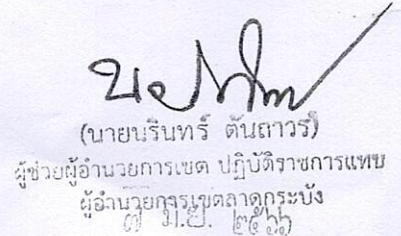 (นายนรินทร์ ตันถาวร)
ผู้ช่วยผู้อำนวยการเขต ปฏิบัติราชการแทน
ผู้อำนวยการเขตลาดกระบัง
๗ มิ.ย. ๒๕๖๖